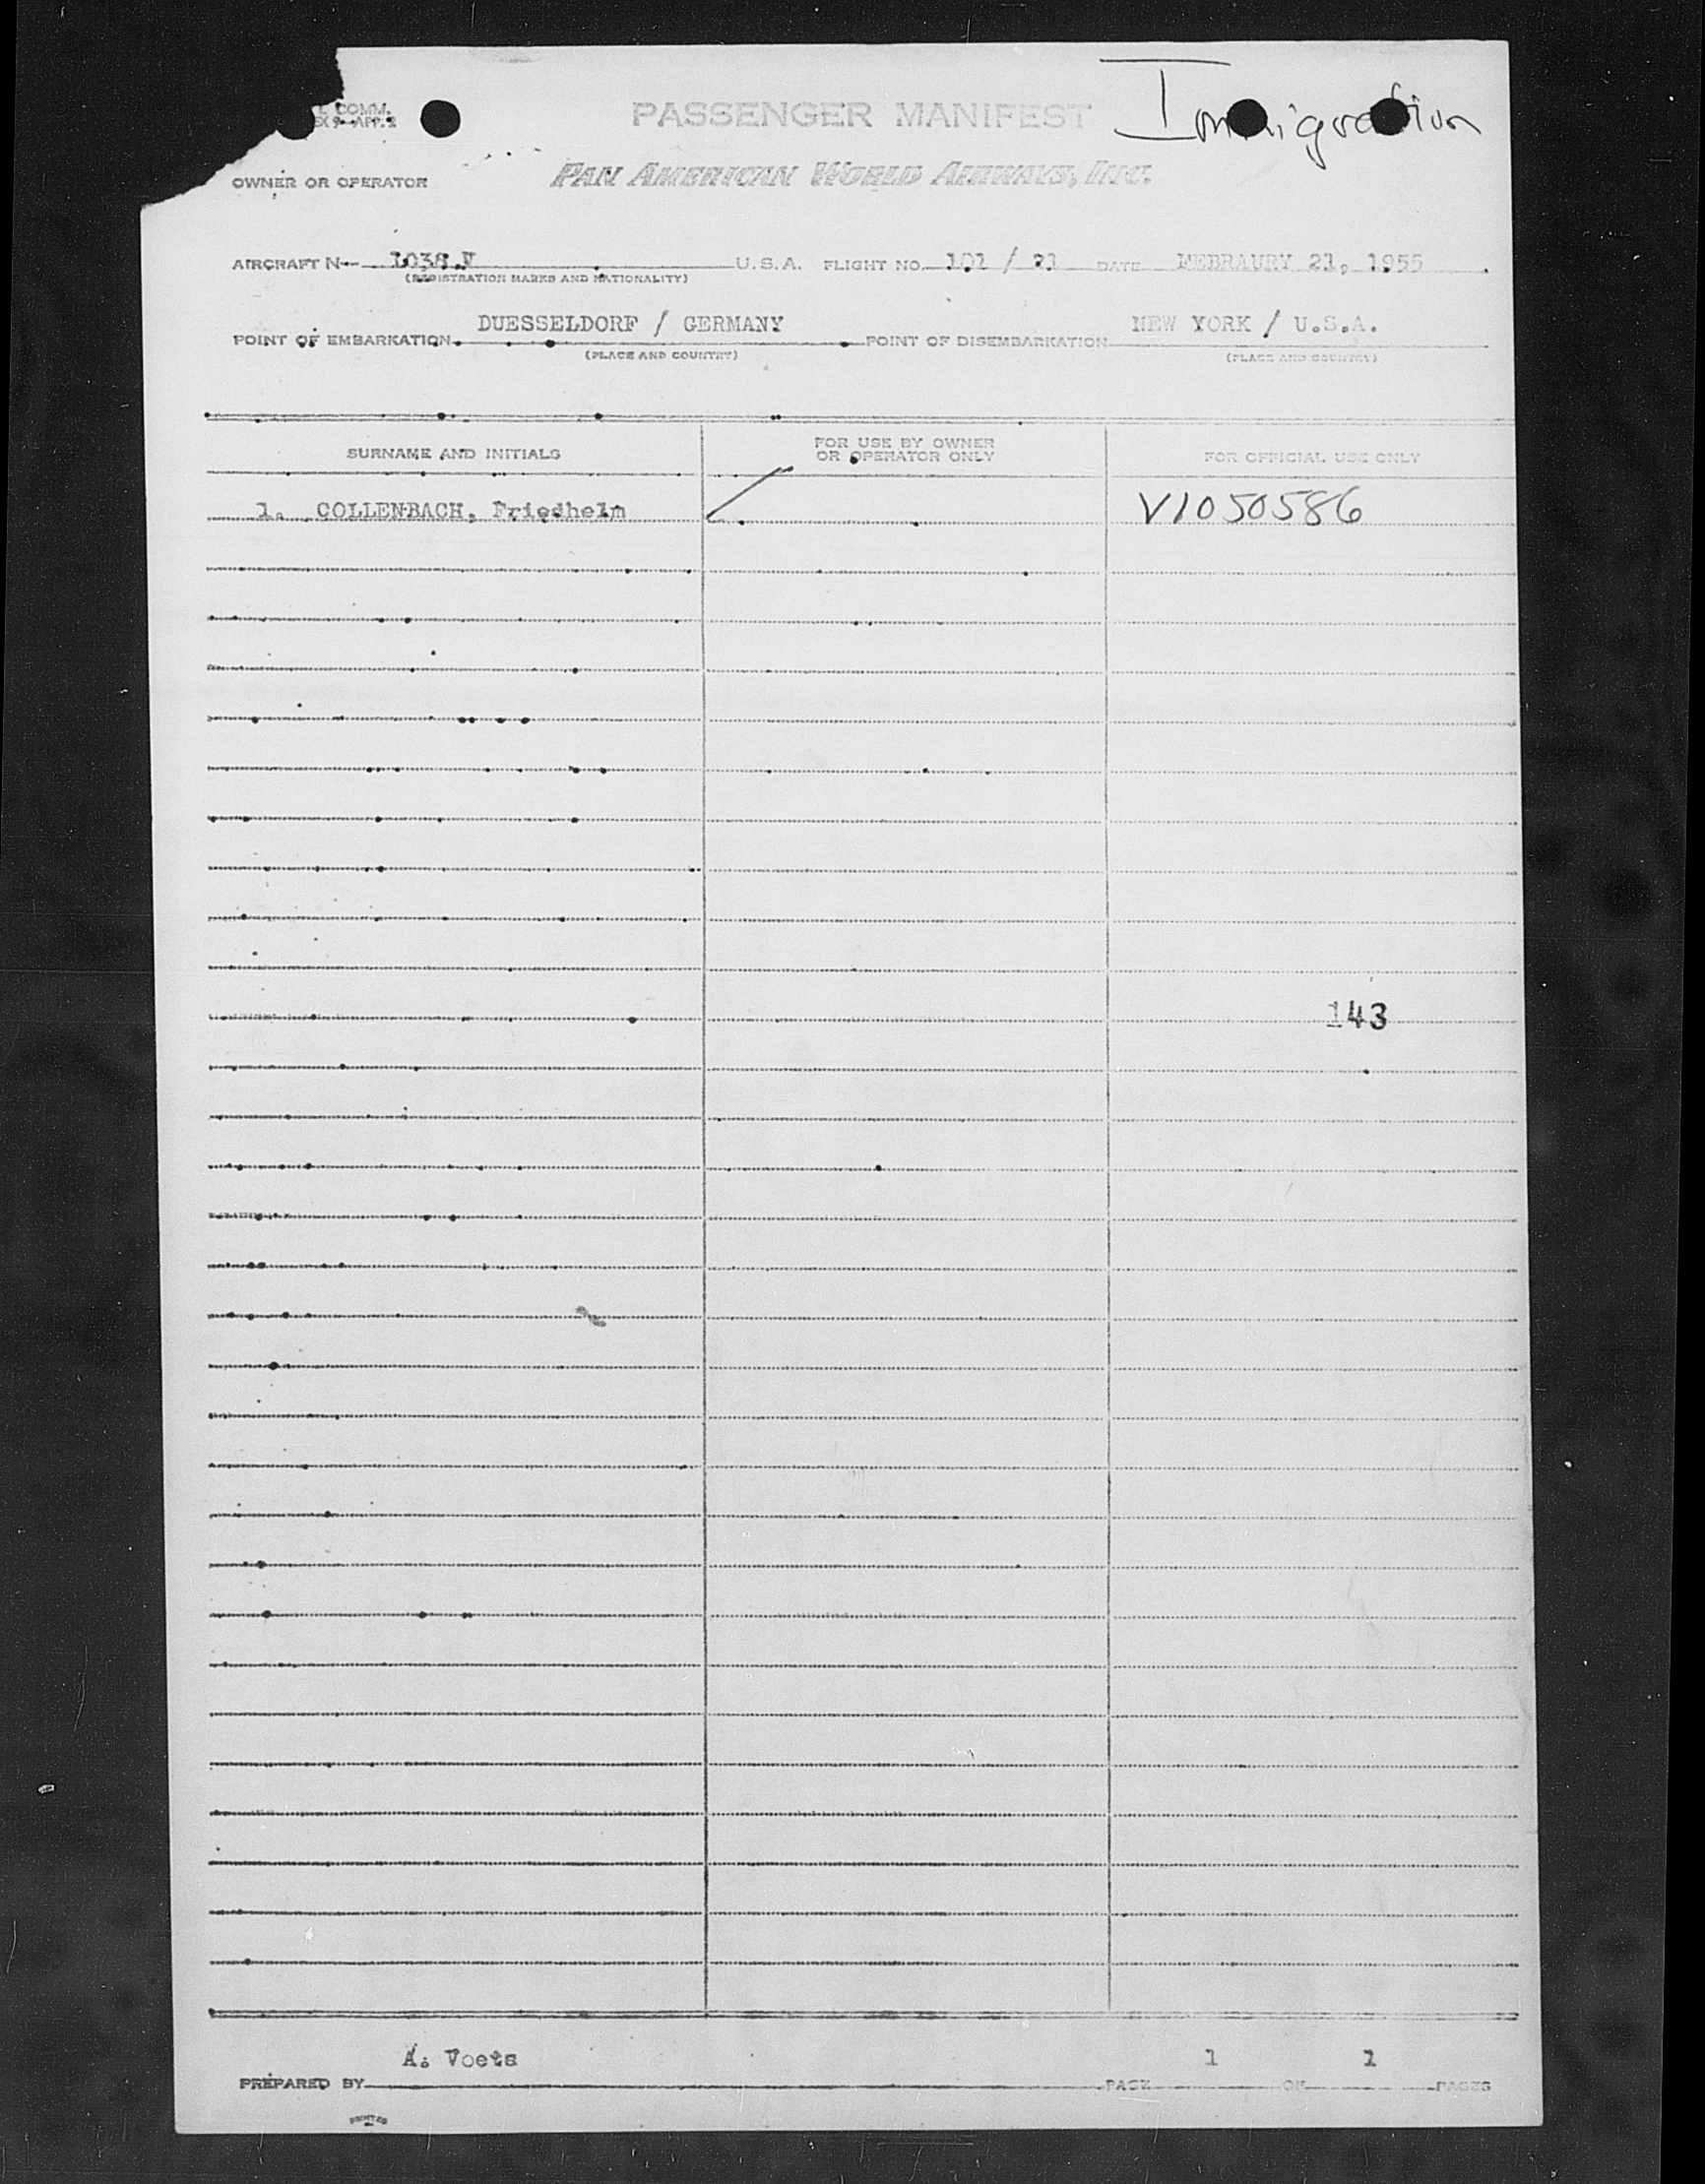 COMM.
PASSENGER MANIFEST
Immigration
PAN AMERICAN WORLD AIRWAYS, INC.
OWNER OR OPERATOR
AIRCRAFT N— 1038 V U.S.A. FLIGHT NO. 101 / 21 DATE FEBRAURY 21, 1955
(REGISTRATION MARKS AND NATIONALITY)
DUESSELDORF / GERMANY NEW YORK / U.S.A.
POINT OF EMBARKATION POINT OF DISEMBARKATION
(PLACE AND COUNTRY) (PLACE AND COUNTRY)
SURNAME AND INITIALS FOR USE BY OWNER OR OPERATOR ONLY FOR OFFICIAL USE ONLY
1. COLLENBACH, Friedhelm V1050586
143
A. Voets 1 1
PREPARED BY PAGE OF PAGES
PRINTED